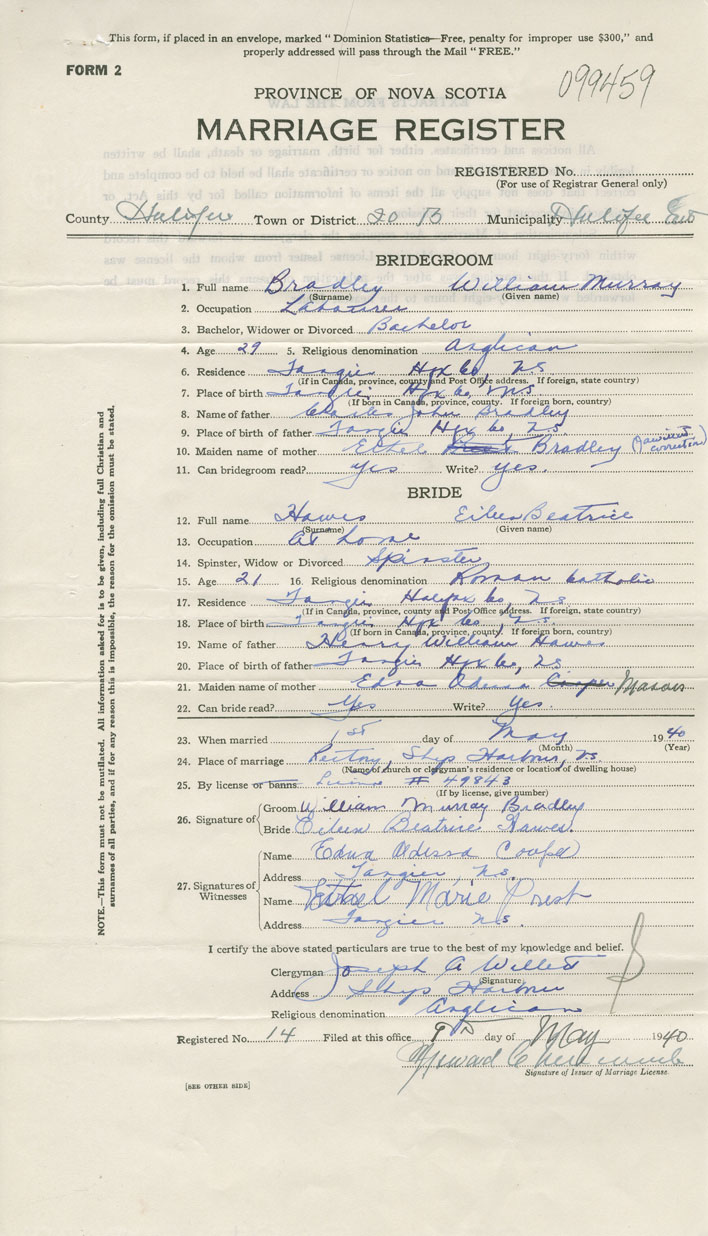 This form, if placed in an envelope, marked "Dominion Statistics—Free, penalty for improper use $300," and
properly addressed will pass through the Mail "FREE."
FORM 2
099459
PROVINCE OF NOVA SCOTIA
MARRIAGE REGISTER
REGISTERED No.
(For use of Registrar General only)
County Halifax Town or District 20 B Municipality Halifax East
BRIDEGROOM
1. Full name Bradley William Murray
(Surname) (Given name)
2. Occupation Labourer
3. Bachelor, Widower or Divorced Bachelor
4. Age 29 5. Religious denomination Anglican
6. Residence Tangier Hfx Co, NS
(If in Canada, province, county and Post Office address. If foreign, state country)
7. Place of birth Tangier Hfx Co, NS
(If born in Canada, province, county. If foreign born, country)
8. Name of father Charles John Bradley
9. Place of birth of father Tangier Hfx Co N.S
10. Maiden name of mother Ethel Bradley
11. Can bridegroom read? yes Write? yes.
BRIDE
12. Full name Hawes Eileen Beatrice
(Surname) (Given name)
13. Occupation At home
14. Spinster, Widow or Divorced Spinster
15. Age 21 16. Religious denomination Roman Catholic
17. Residence Tangier Halifax Co, N.S.
(If in Canada, province, county and Post Office address. If foreign, state country)
18. Place of birth Tangier Hfx Co, N.S.
(If born in Canada, province, county. If foreign born, country)
19. Name of father Henry William Hawes
20. Place of birth of father Tangier Hfx Co, NS
21. Maiden name of mother Edna Odessa Cooper
22. Can bride read? Yes Write? Yes.
23. When married 1st day of May 1940
(Month) (Year)
24. Place of marriage Rectory, Ship Harbour, NS
(Name of church or clergyman's residence or location of dwelling house)
25. By license or banns. # 49843
(If by license, give number)
26. Signature of
Groom William Murray Bradley
Bride Eileen Beatrice Hawes.
27. Signatures of Witnesses
Name Edna Odessa Cooper
Address Tangier, N.S.
Name Ethel Marie Prest
Address Tangier N.S.
I certify the above stated particulars are true to the best of my knowledge and belief.
Clergyman Joseph A Willett
(Signature)
Address Ship Harbour
Religious denomination Anglican
Registered No. 14 Filed at this office 9th day of May 1940
Signature of Issuer of Marriage License.
[SEE OTHER SIDE]
NOTE.—This form must not be mutilated. All information asked for is to be given, including full Christian and
surnames of all parties, and if for any reason this is impossible, the reason for the omission must be stated.